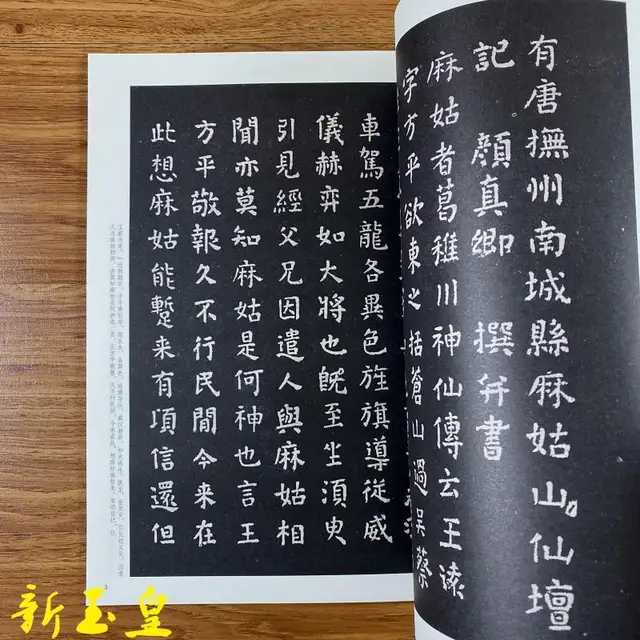 有唐撫州南城縣麻姑山仙壇
記 顏真卿 撰并書
麻姑者葛稚川神仙傳云王遠
字方平欲東之括蒼山過吳蔡
車駕五龍各異色旌旗導從威
儀赫弈如大將也既至坐須臾
引見經父兄因遣人與麻姑相
聞亦莫知麻姑是何神也言王
方平敬報久不行民間今来在
此想麻姑能蹔来有項信還但
新玉皇